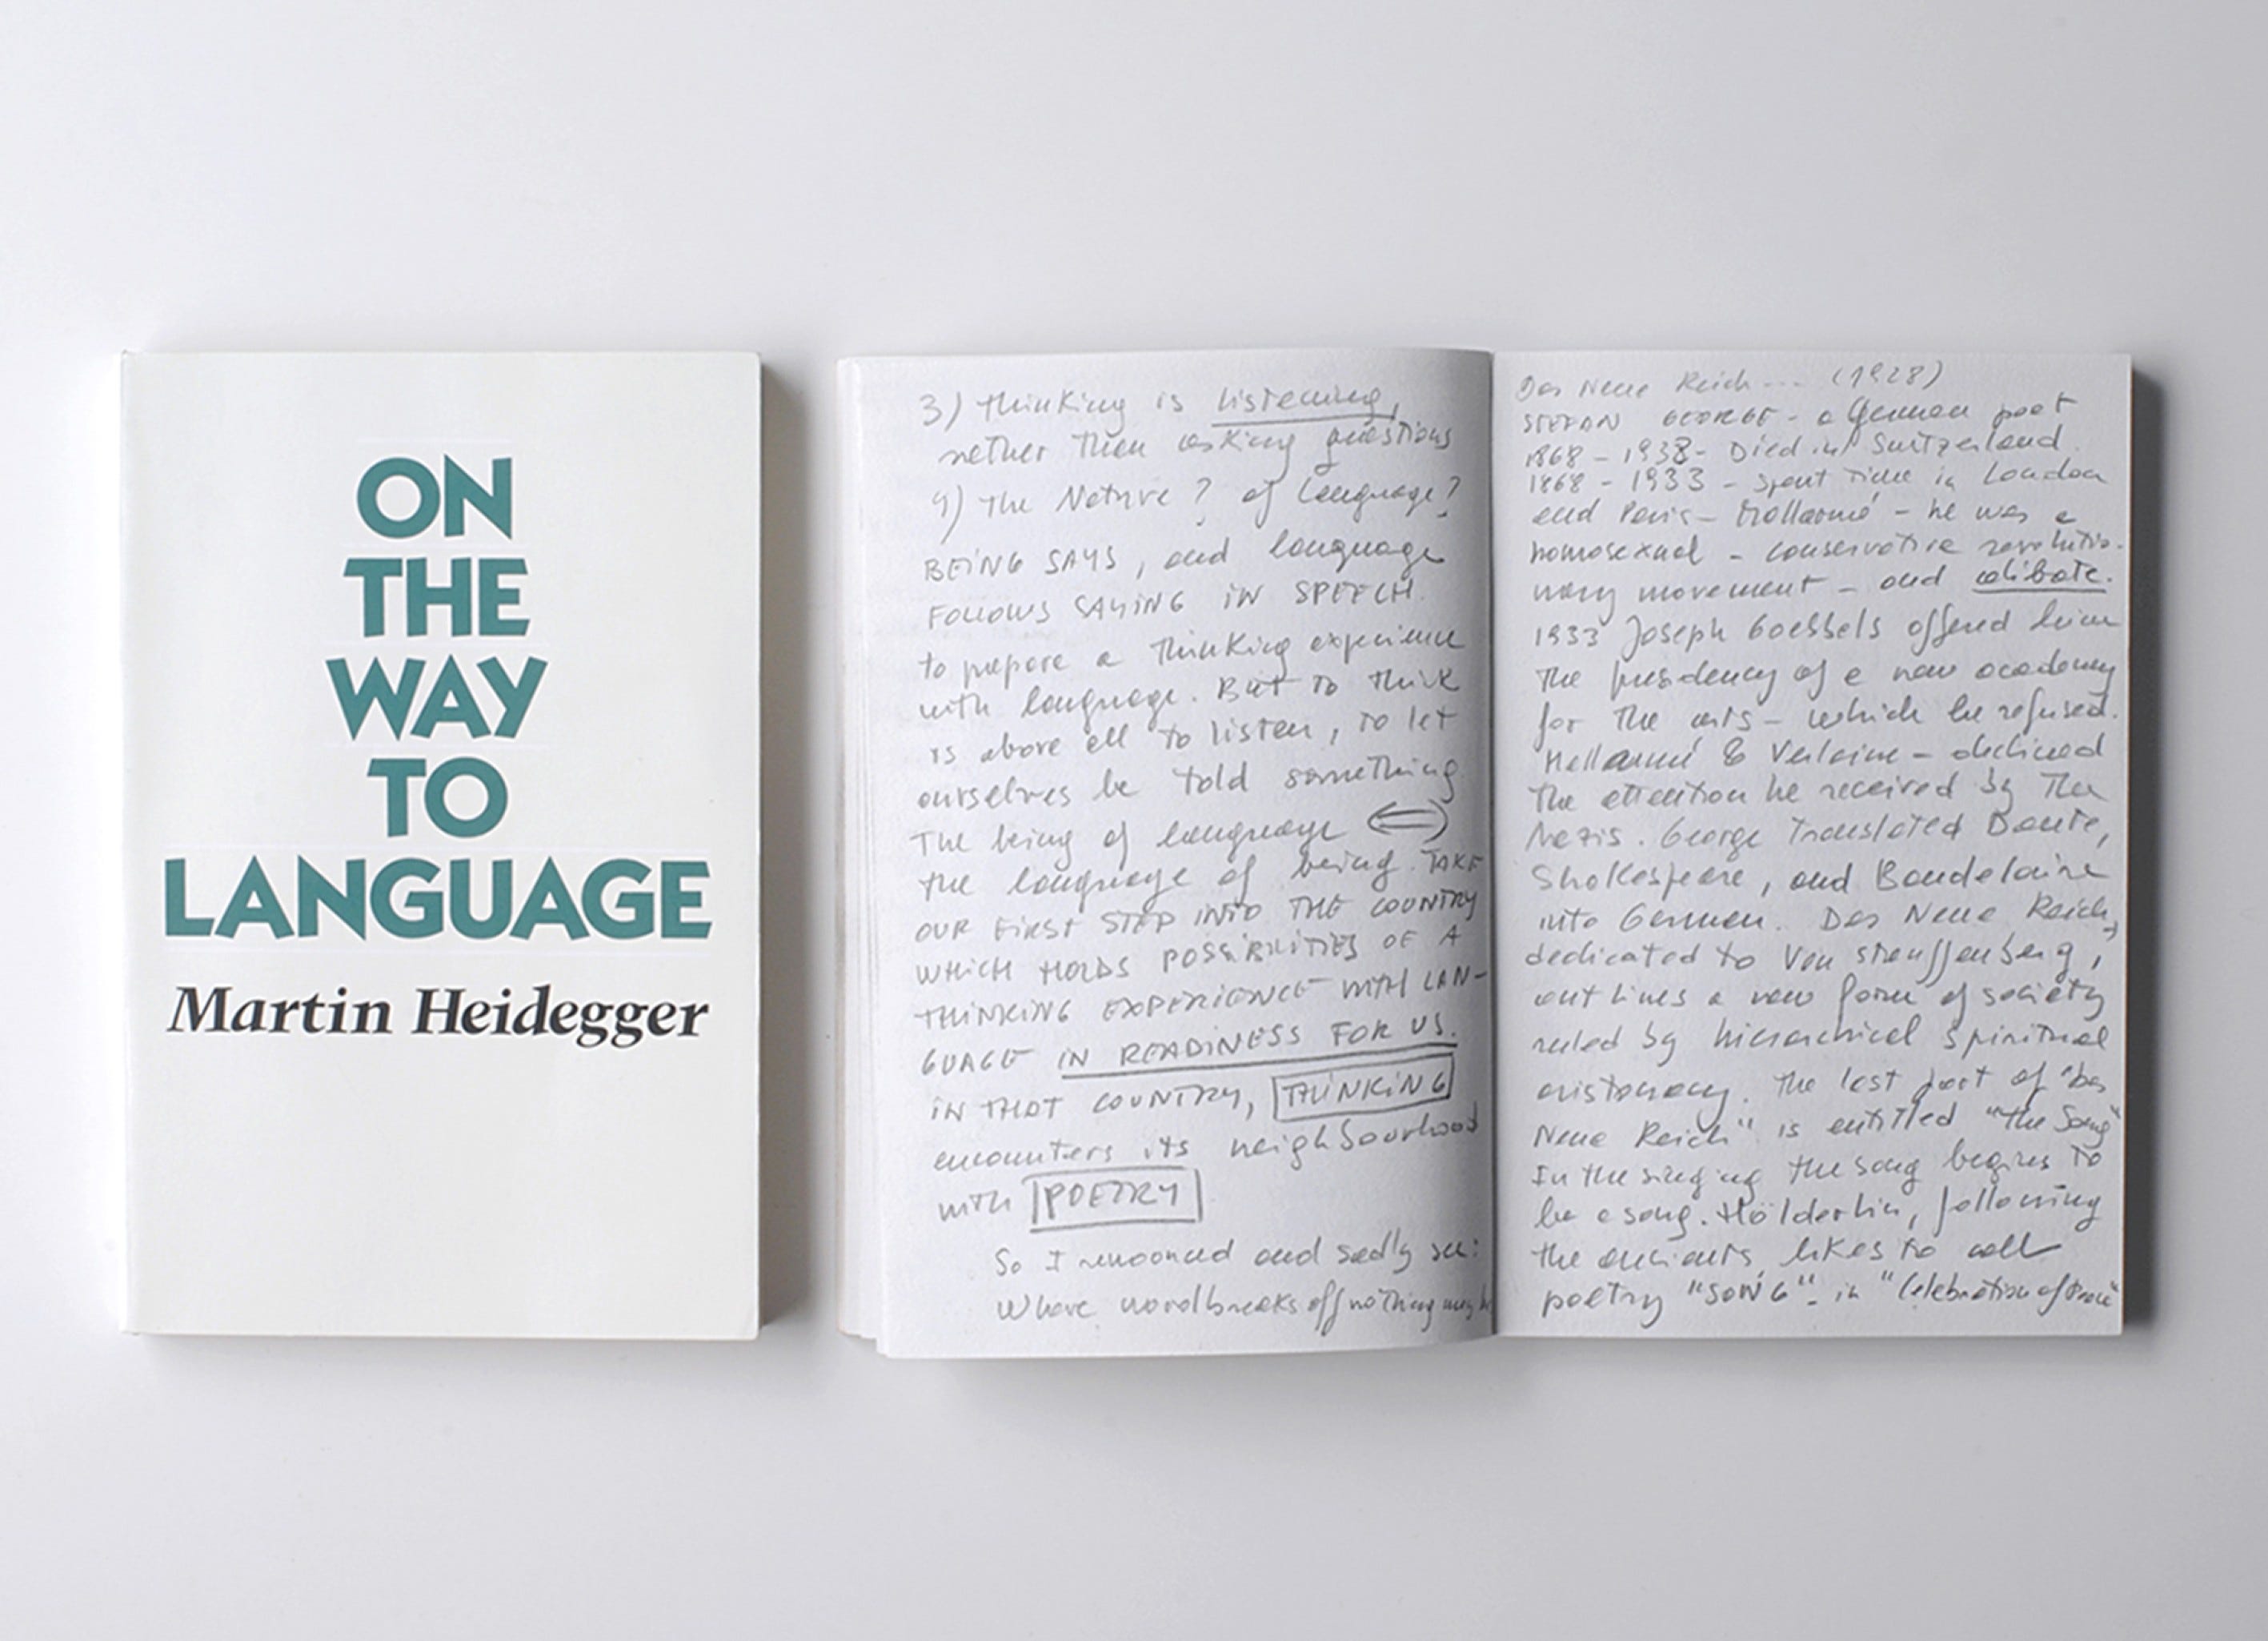 ON
THE
WAY
TO
LANGUAGE
Martin Heidegger
3) Thinking is listening,
rether then asking questions
9) The Nature? of Language?
BEING SAYS, and language
FOLLOWS SAYING IN SPEECH.
to prepare a thinking experience
with language. But to think
is above all to listen, to let
ourselves be told something
The being of language ⟺
the language of being. TAKE
OUR FIRST STEP INTO THE COUNTRY
WHICH HOLDS POSSIBILITIES OF A
THINKING EXPERIENCE WITH LAN-
GUAGE IN READINESS FOR US.
IN THAT COUNTRY, THINKING
encounters its neighbourhood
with POETRY
So I renounced and sadly see:
Where word breaks off nothing may be
Das Neue Reich... (1928)
STEFAN GEORGE - a German poet
1868 - 1938 - Died in Switzerland.
1868 - 1933 - spent time in London
and Paris - Mallarmé - he was a
homosexual - conservative revolutio-
nary movement - and celibate.
1933 Joseph Goebbels offered him
the presidency of a new academy
for the arts - which he refused.
Mallarmé & Verlaine - declined
the attention he received by the
Nazis. George translated Dante,
Shakespeare, and Baudelaire
into German. Das Neue Reich,
dedicated to Von Stauffenberg,
outlines a new form of society
ruled by hierarchical spiritual
aristocracy. The last part of "Das
Neue Reich" is entitled "The Song"
In the singing the song begins to
be a song. Hölderlin, following
the ancients likes to call
poetry "SONG" - in "Celebration of Peace"